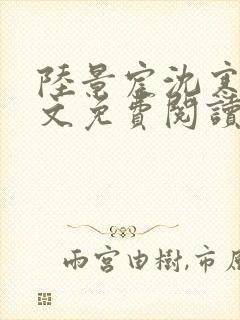 陸景宦沈寒
文免費閱讀
雨宮由樹,市原